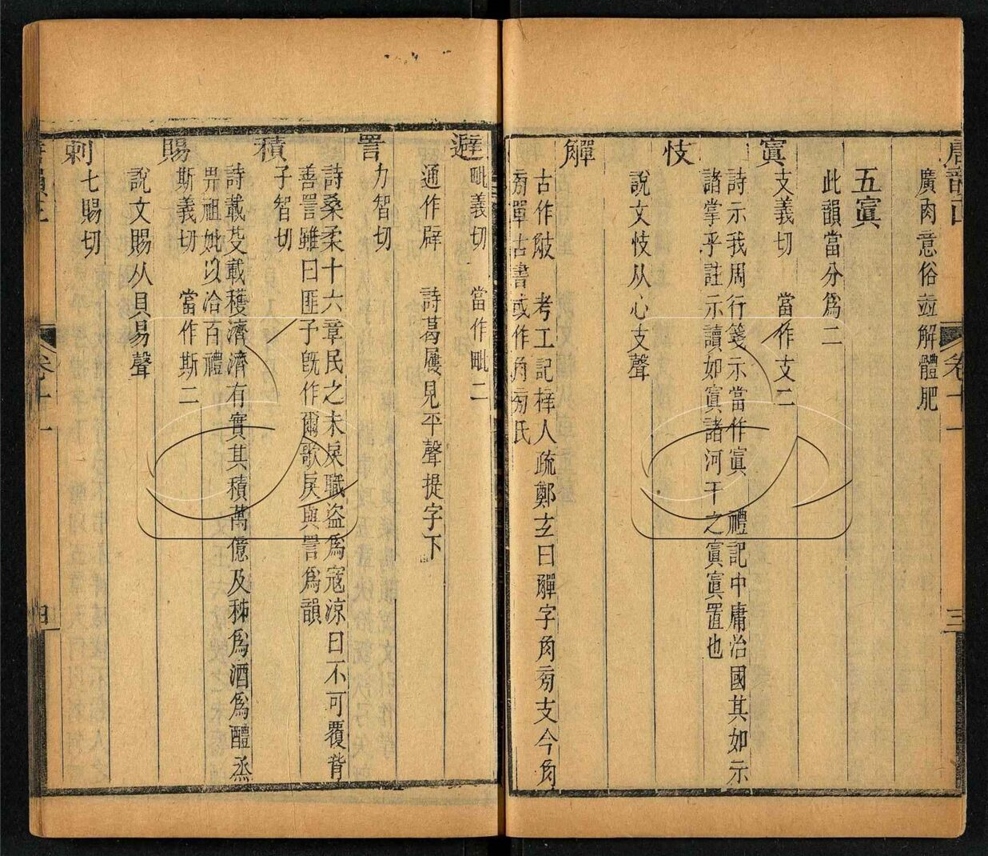 廣肉意俗竝解體肥
五寘
此韻當分爲二
寘
支義切　當作支二
詩示我周行箋示當作寘　禮記中庸治國其如示
諸掌乎註示讀如寘諸河干之寘寘置也
忮
說文忮从心支聲
觶
古作䏢　考工記梓人疏鄭玄曰觶字角旁支今角
旁單古書或作角旁氏
卷十一
三
避
毗義切　當作毗二
通作辟　詩葛屨見平聲提字下
詈
力智切
詩桑柔十六章民之未戾職盜爲寇涼曰不可覆背
善詈雖曰匪予旣作爾歌戾與詈爲韻
積
子智切
詩載芟載穫濟濟有實其積萬億及秭爲酒爲醴烝
畀祖妣以洽百禮
賜
斯義切　當作斯二
說文賜从貝易聲
刺
七賜切
卷十一
四